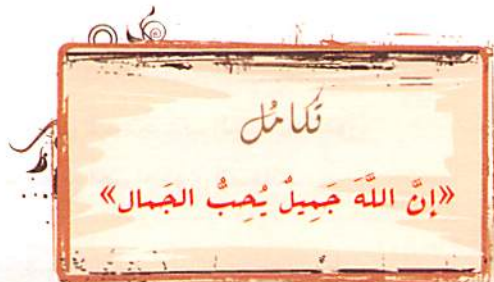 تَكامُل
«إنَّ اللَّهَ جَمِيلٌ يُحِبُّ الجَمال»